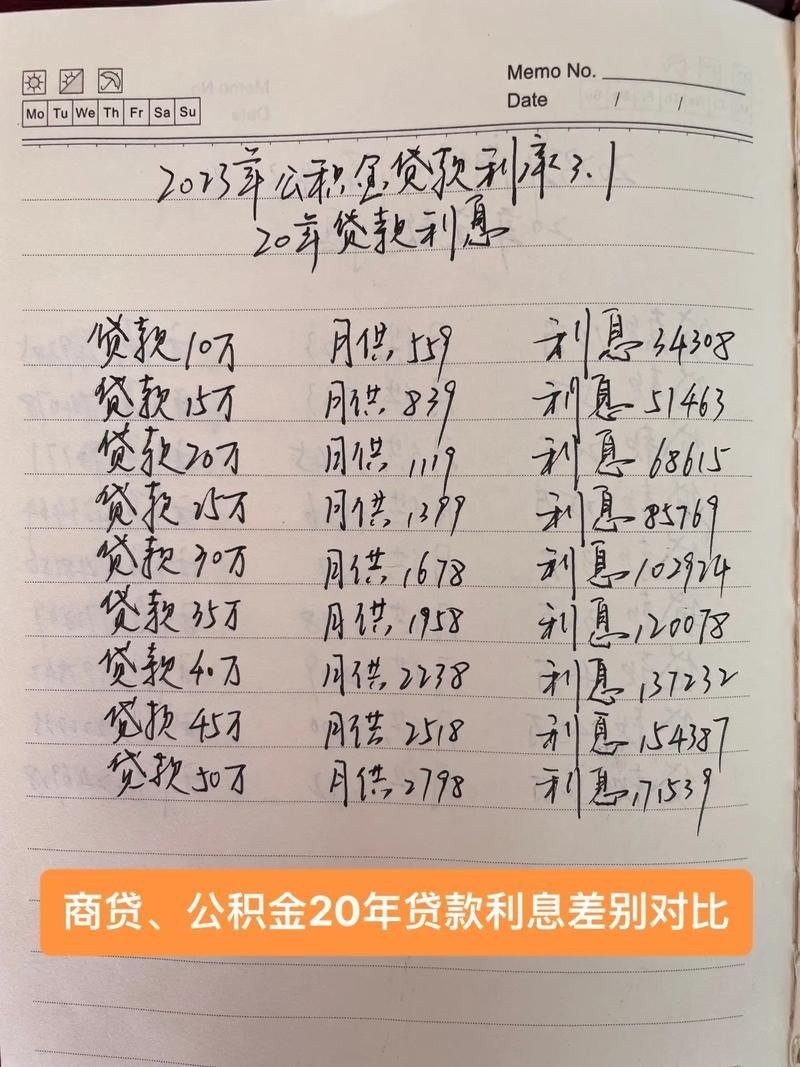 Memo No.
Mo Tu We Th Fr Sa Su
Date / /
2023年公积金贷款利率3.1
20年贷款利息
贷款10万 月供559 利息34308
贷款15万 月供839 利息51463
贷款20万 月供1119 利息68615
贷款25万 月供1399 利息85769
贷款30万 月供1678 利息102924
贷款35万 月供1958 利息120078
贷款40万 月供2238 利息137232
贷款45万 月供2518 利息154387
贷款50万 月供2798 利息171539
商贷、公积金20年贷款利息差别对比